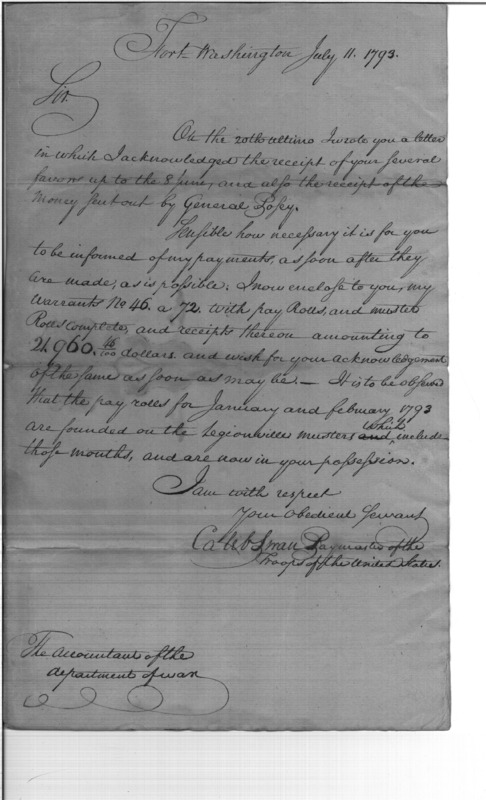 Fort Washington July 11. 1793.
Sir
On the 20th ultimo I wrote you a letter
in which I acknowledged the receipt of your several
favors up to the 8 June, and also the receipt of the
Money sent out by General Posey.
Sensible how necessary it is for you
to be informed of my payments, as soon after they
are made, as is possible. I now enclose to you, my
Warrants No 46. a 72. with pay Rolls, and muster
Rolls complete, and receipts thereon amounting to
21,960. /100 dollars. and wish for your acknowledgement
of the same as soon as may be. — It is to be observed
that the pay rolls for January and february 1793
are founded on the Legionville musters and which include
those months, and are now in your possession.
I am with respect
Your Obedient Servant
Caleb Swan Paymaster of the
Troops of the United States.
The Accountant of the
department of war